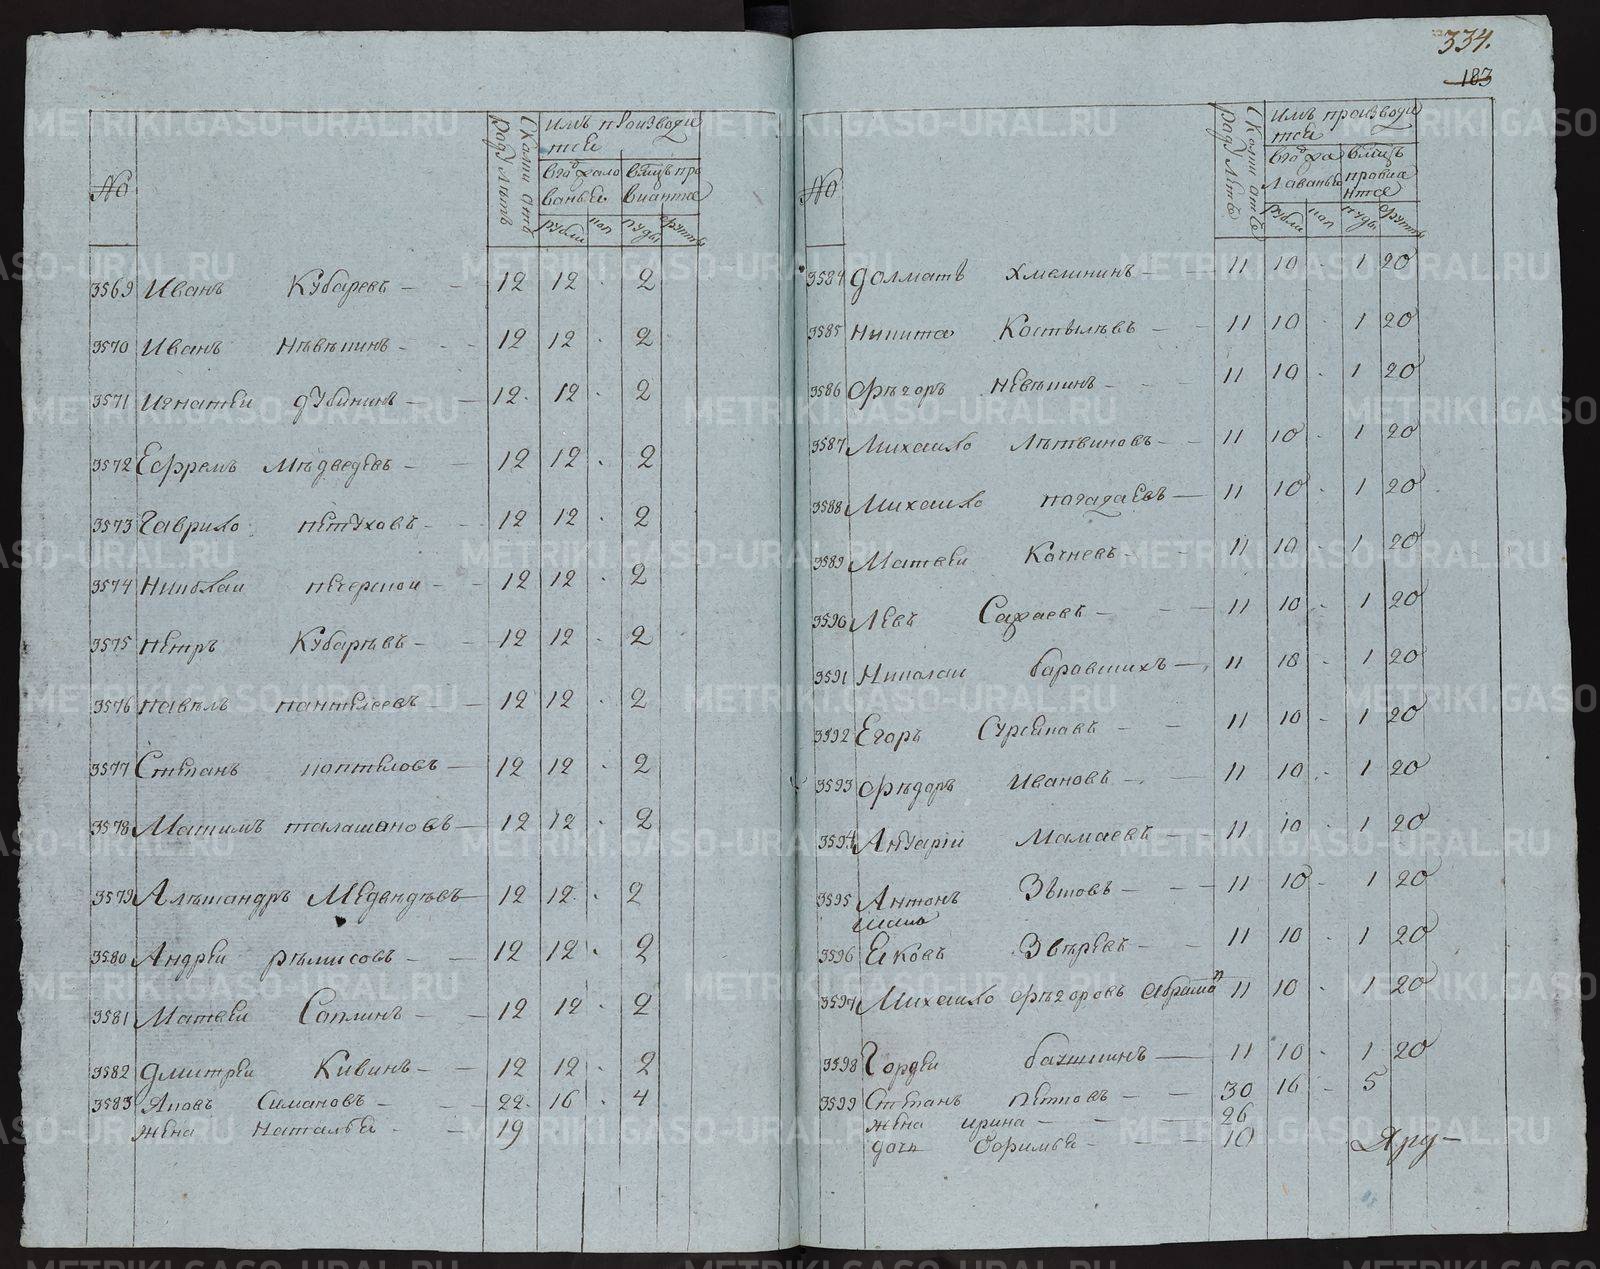 334.
183
No
Сколи отъ
роду лѣтъ
имъ производи
тся
вгод жало
ванья
вмцъ про
вианта
рубли
коп
пуды
фунты
3569 Иванъ Кубаревъ - - 12 12 . 2
3570 Иванъ Нѣвѣкинъ - - 12 12 . 2
3571 Игнатеи дубининъ - - 12. 12 . 2
3572 Ефремъ Мѣдведевъ - - 12 12 . 2
3573 Гаврило петуховъ - - 12 12 . 2
3574 Николаи печерскои - - 12 12 . 2
3575 петръ Кубарѣвъ - - 12 12 . 2
3576 павѣлъ пантелеевъ - - 12 12 . 2
3577 Степанъ коптеловъ - 12 12 . 2
3578 Макимъ талашановъ - 12 12 . 2
3579 Алѣкандръ Медведѣвъ 12 12 . 2
3580 Андреи рѣмисовъ - - 12 12 . 2
3581 Матвеи Саплинъ - - 12 12 . 2
3582 дмитреи Кивинъ - - 12 12 . 2
3583 Яковъ Симановъ - - 22. 16 . 4
жена Наталья - - 19
No
Сколи отъ
роду лѣтъ
имъ производи
тся
вгод жа
лованья
вмцъ
провиа
нта
рубли
коп
пуды
фунты
3584 долматъ Хмелининъ - - 11 10 - 1 20
3585 Никита Костылѣвъ - - 11 10 - 1 20
3586 Фѣдоръ невѣкинъ - - 11 10 - 1 20
3587 Михаило Лѣтвиновъ - - 11 10 - 1 20
3588 Михаило погадаевъ - 11 10 - 1 20
3589 Матвеи Качневъ - - 11 10 - 1 20
3590 Левъ Сараевъ - - - 11 10 - 1 20
3591 Николаи баравскихъ - 11 10 - 1 20
3592 Егоръ Суренковъ - - 11 10 - 1 20
3593 Фѣдоръ Ивановъ - - 11 10 - 1 20
3594 Мамаевъ - - 11 10 - 1 20
3595 Антонъ Зѣтовъ - - 11 10 - 1 20
3596 Ековъ Звѣревъ - - 11 10 - 1 20
3597 Михаило Фѣдоровъ 11 10 - 1 20
3598 Гордеи - 11 10 - 1 20
3599 Степанъ Пѣтковъ - - 30 16 - 5
жена ирина - - - 26
дочь Офимья - - - 10
METRIKI.GASO-URAL.RU